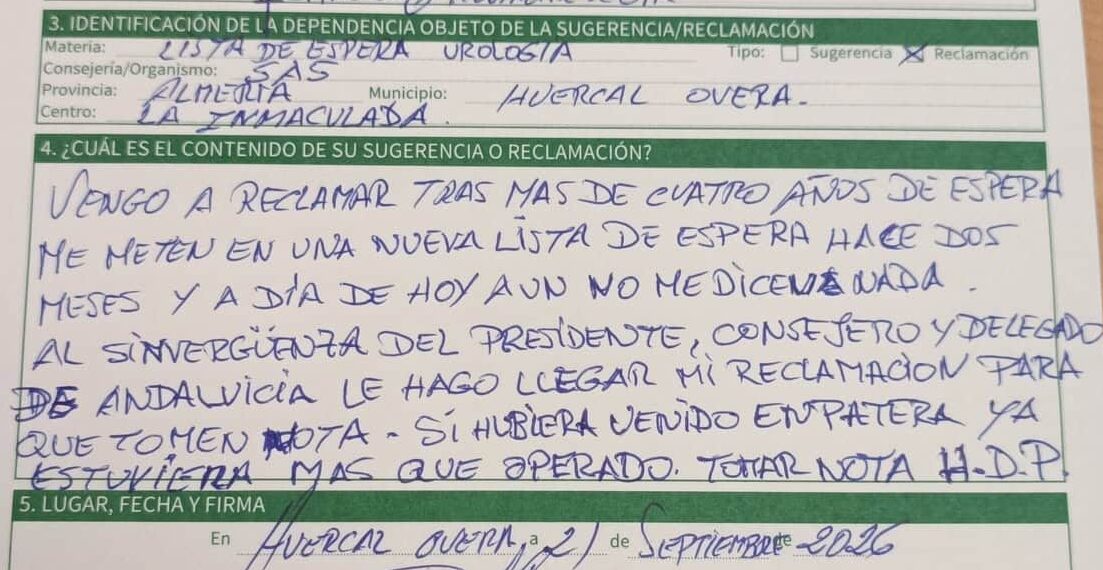 3. IDENTIFICACIÓN DE LA DEPENDENCIA OBJETO DE LA SUGERENCIA/RECLAMACIÓN
Materia: LISTA DE ESPERA UROLOGIA Tipo: Sugerencia Reclamación
Consejería/Organismo: SAS
Provincia: ALMERIA Municipio: HUERCAL OVERA.
Centro: LA INMACULADA.
4. ¿CUÁL ES EL CONTENIDO DE SU SUGERENCIA O RECLAMACIÓN?
VENGO A RECLAMAR TRAS MAS DE CUATRO AÑOS DE ESPERA
ME METEN EN UNA NUEVA LISTA DE ESPERA HACE DOS
MESES Y A DÍA DE HOY AUN NO ME DICEN NADA.
AL SINVERGÜENZA DEL PRESIDENTE, CONSEJERO Y DELEGADO
DE ANDALUICIA LE HAGO LLEGAR MI RECLAMACION PARA
QUE TOMEN NOTA - SI HUBIERA VENIDO EN PATERA YA
ESTUVIERA MAS QUE OPERADO. TOMAR NOTA H.D.P.
5. LUGAR, FECHA Y FIRMA
En HUERCAL OVERA, a 21 de SEPTIEMBRE de 2026